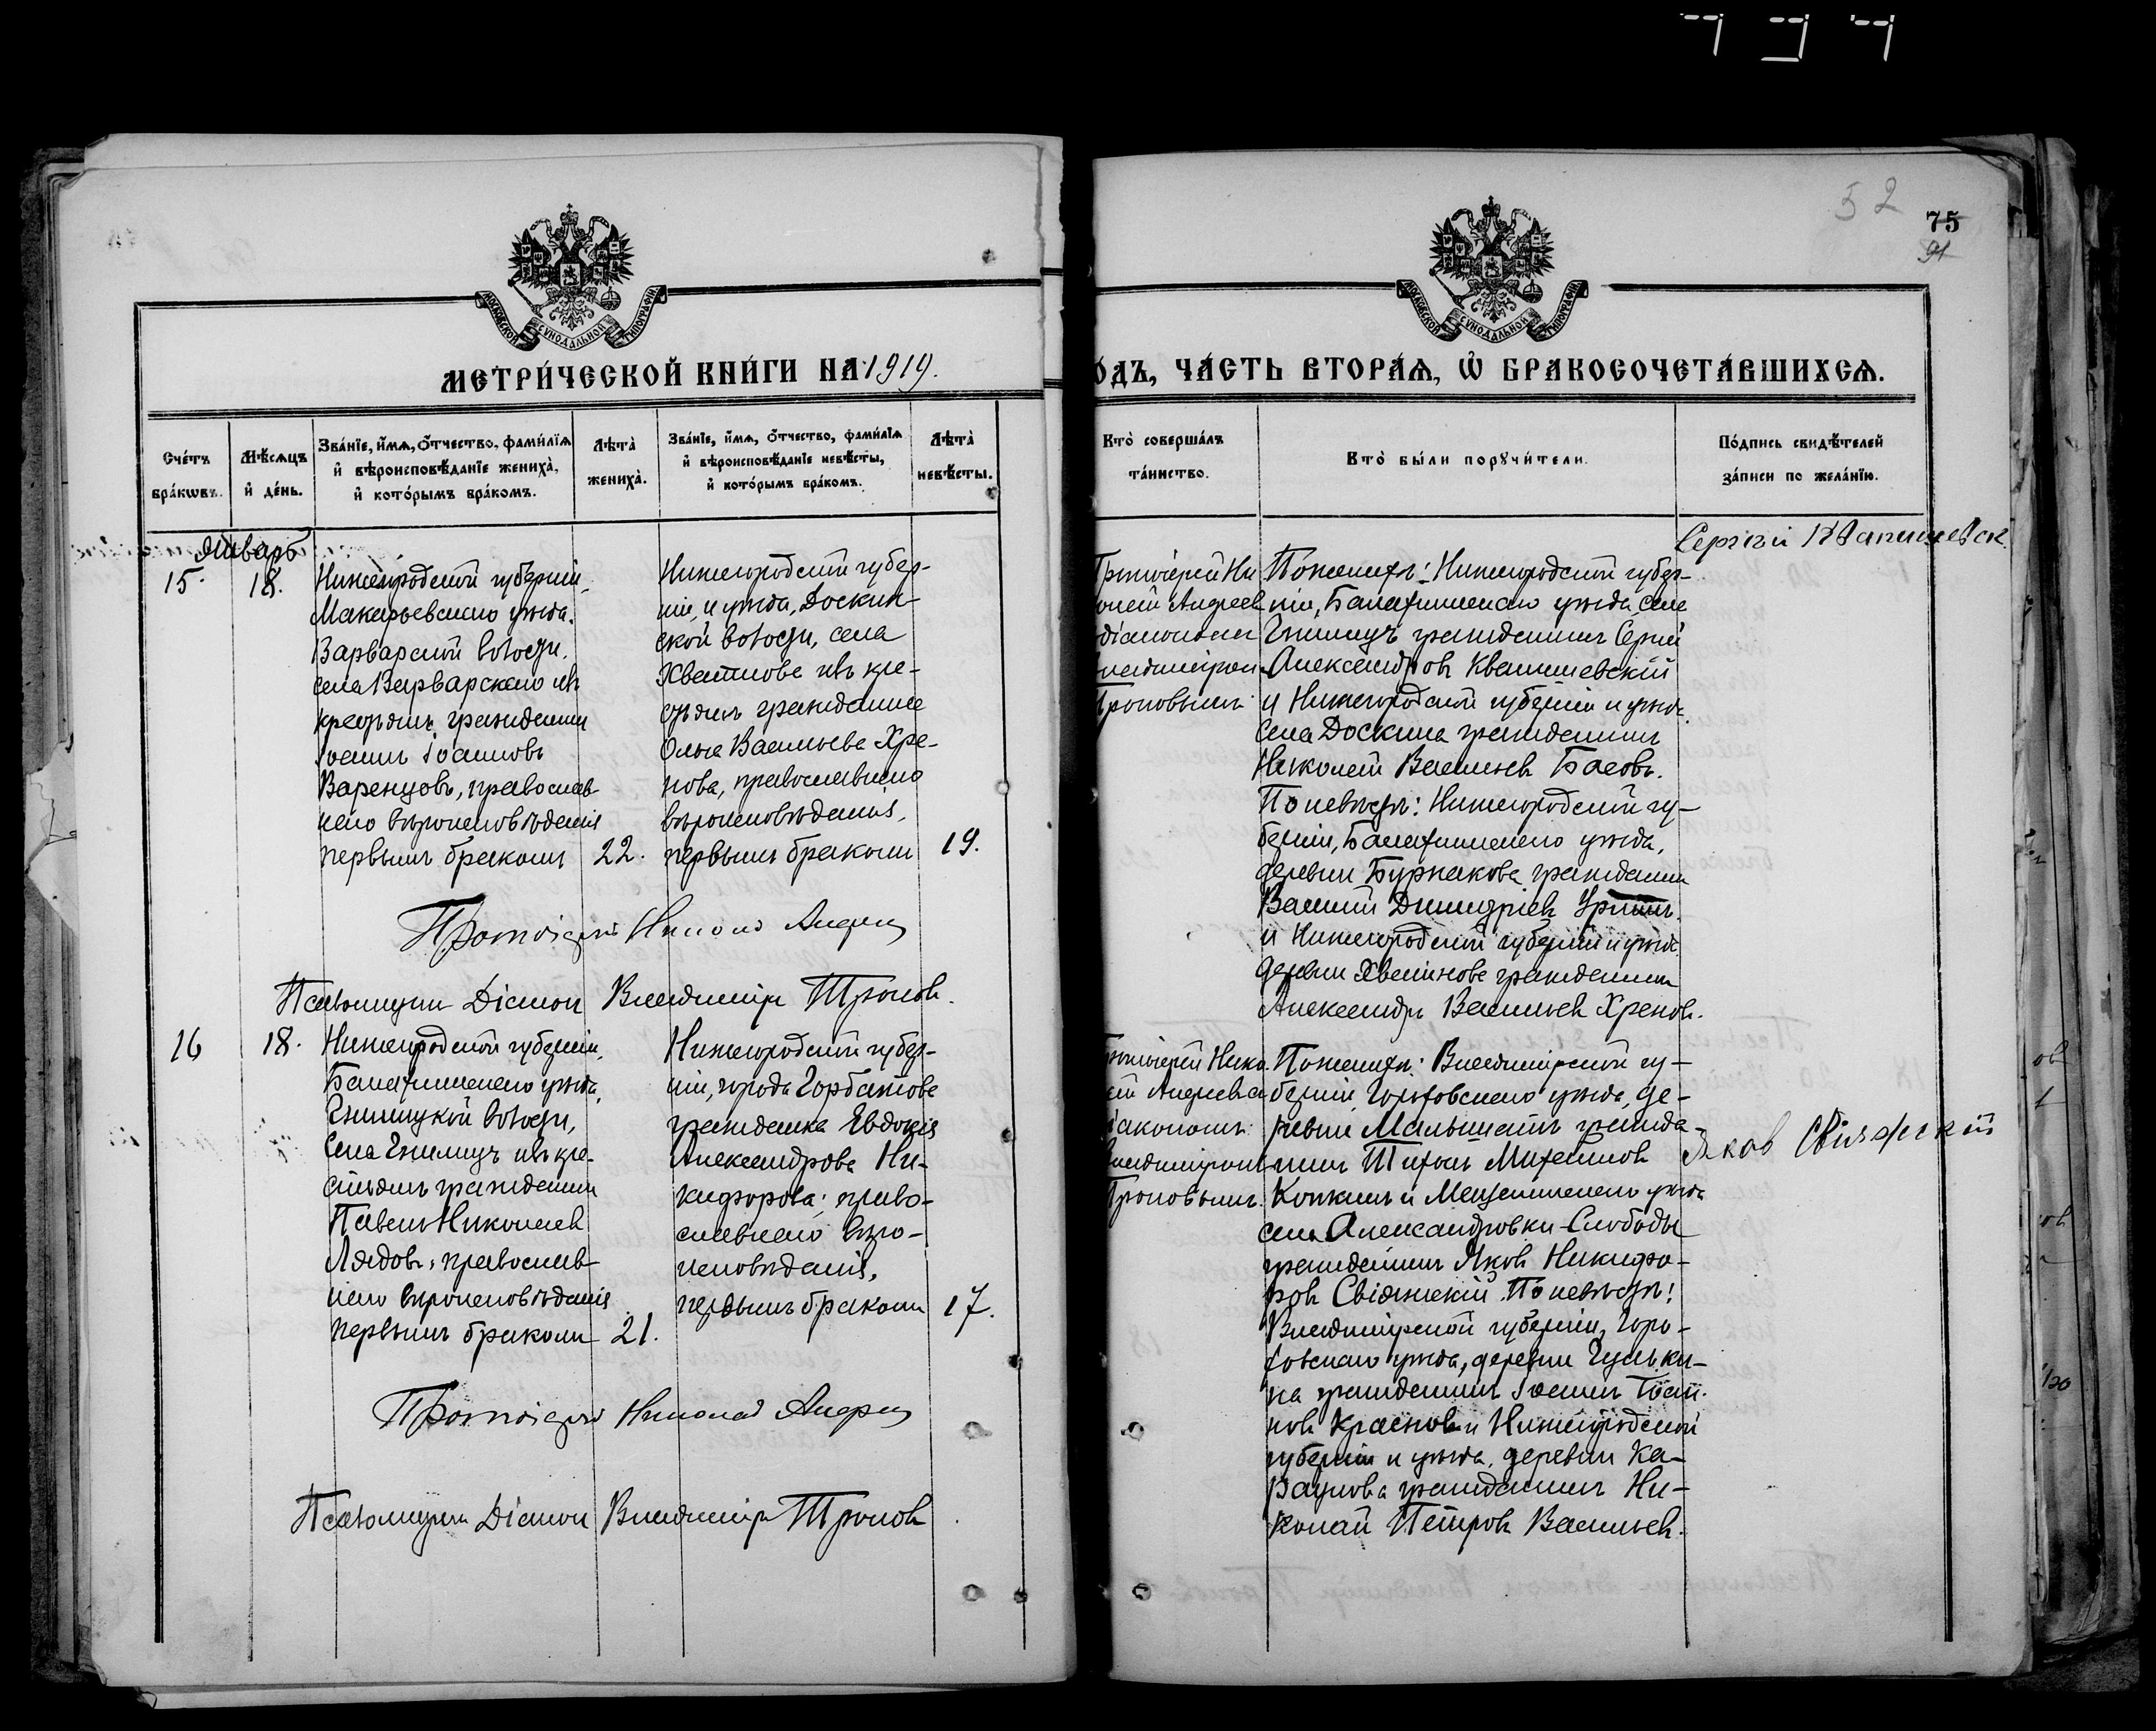 52
75
91
МОСКОВСКОЙ СѴНОДАЛЬНОЙ ТИПОГРАФІИ
МОСКОВСКОЙ СѴНОДАЛЬНОЙ ТИПОГРАФІИ
МЕТРИ́ЧЕСКОЙ КНИ́ГИ НА 1919.
ОДЪ, ЧА́СТЬ ВТОРА́Ѧ, Ѽ БРАКОСОЧЕТА́ВШИХСѦ.
Сче́тъ бра́кѡвъ.
Мѣ́сѧцъ и҆ де́нь.
Зва́нїе, и҆́мѧ, ѻ҆́тчество, фами́лїѧ и҆ вѣроисповѣ́данїе жениха̀, и҆ кото́рымъ бра́комъ.
Лѣта̀ жениха̀.
Зва́нїе, и҆́мѧ, ѻ҆́тчество, фами́лїѧ и҆ вѣроисповѣ́данїе невѣ́сты, и҆ кото́рымъ бра́комъ.
Лѣта̀ невѣ́сты.
Кто̀ соверша́лъ та́инство.
Кто̀ бы́ли порꙋчи́тели.
По́дпись свидѣ́телей за́писи по жела́нїю.
Январь
15.
18.
Нижегородской губерніи,
Макарьевскаго уѣзда,
Варварской волости,
села Варварскаго изъ
крестьянъ гражданин
Іоаннъ Іоанновъ
Варенцовъ, православ-
наго вѣроисповѣданія
первымъ бракомъ
22.
Нижегородской губер-
ніи, и уѣзда, Доскин-
ской волости, села
изъ кре-
стьянъ гражданка
Ольга Васильева Хре-
нова, православнаго
вѣроисповѣданія,
первымъ бракомъ
19.
Протоіерей Ни
колай Андреев
діакономъ
Владиміром
Троповымъ
По женихѣ: Нижегородской губер-
ніи, Балахнинскаго уѣзда, села
Гнилицъ гражданинъ Сергій
Александровъ Квашневскій
и Нижегородской губерніи и уѣзда,
села Доскина гражданинъ
Николай Васильевъ Басовъ.
По невѣстѣ: Нижегородской гу-
берніи, Балахнинскаго уѣзда,
деревни Бурнакова гражданин
Василій Димитріевъ
и Нижегородской губерніи и уѣзда
деревни гражданинъ
Александръ Васильевъ Хреновъ.
Сергій
Протоіерей Николай Андреев
Псаломщикъ Діаконъ Владиміръ Троповъ.
16
18.
Нижегородской губерніи,
Балахнинскаго уѣзда,
Гнилицкой волости,
села Гнилицъ изъ кре-
стьянъ гражданин
Павелъ Николаевъ
Лядовъ, православ-
наго вѣроисповѣданія
первымъ бракомъ
21.
Нижегородской губер-
ніи, города Горбатова
гражданка Евдокія
Александрова Ни-
кифорова, право-
славнаго вѣро-
исповѣданія,
первымъ бракомъ
17.
Протоіерей Нико
лай Андреева
діакономъ
Владиміром
Троповымъ.
По женихѣ: Владимірской гу-
берніи, Гороховскаго уѣзда, де-
ревни гражда-
нинъ Тихонъ Михаиловъ
и уѣзда
села Александровки-Слободы
гражданинъ Яковъ Никифо-
ровъ Свіяжскій. По невѣстѣ:
Владимірской губерніи, Горо-
ховскаго уѣзда, деревни
гражданинъ Іоаннъ Іоан-
новъ Красновъ и Нижегородской
губерніи и уѣзда, деревни Ка-
раулова гражданинъ Ни-
колай Петровъ Васильевъ.
Яков Свияжский
Протоіерей Николай Андреев
Псаломщикъ Діаконъ Владиміръ Троповъ